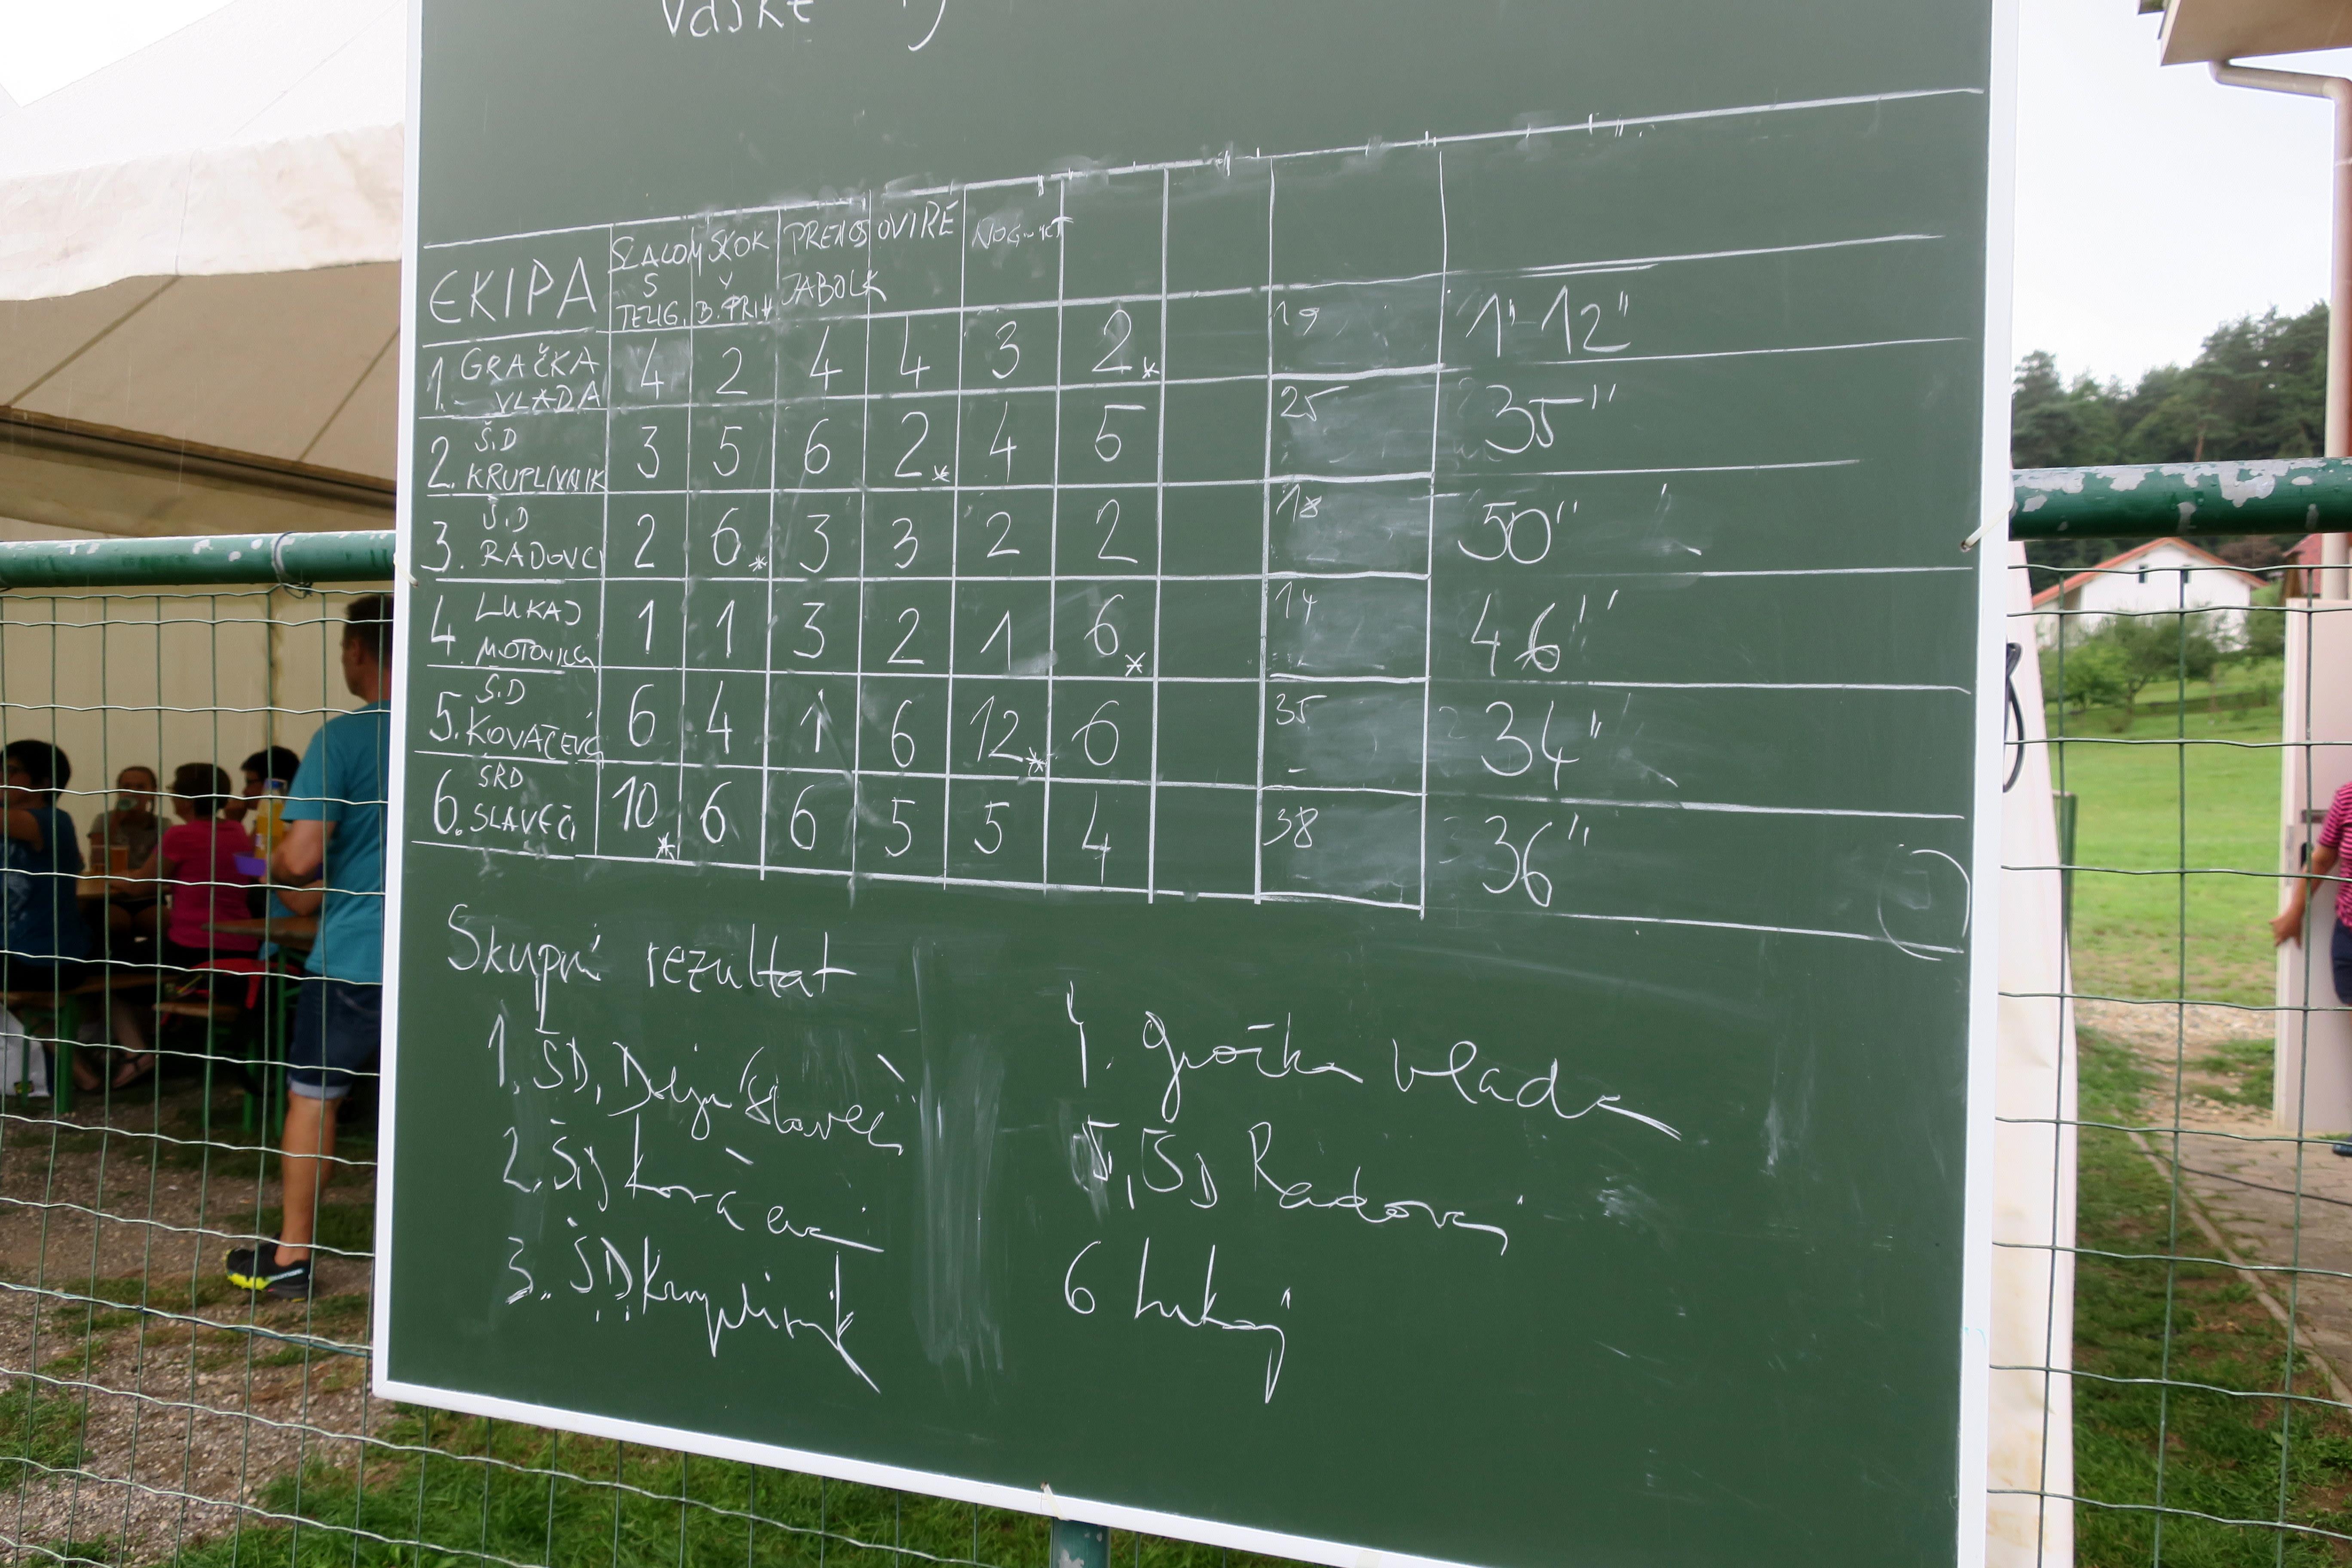 Vaške
EKIPA SLALOM S TEŽIG. SKOK V B. PRENOS JABOLK OVIRE
1. GRAČKA VLADA 4 2 4 4 3 2* 19 1" 12"
2. Š.D KRUPLIVNIK 3 5 6 2* 4 5 25 35"
3. Š.D RADOVCI 2 6* 3 3 2 2 18 50"
4. LUKAJ 1 1 3 2 1 6* 14 46"
5. Š.D KOVAČEVCI 6 4 1 6 12* 6 35 34"
6. ŠRD SLAVEČI 10* 6 6 5 5 4 38 36"
Skupni rezultat
1. ŠD, Slaveči
2. ŠD Kovačevci
3. ŠD Kruplivnik
4. gračka vlada
5. ŠD Radovci
6 Lukaj